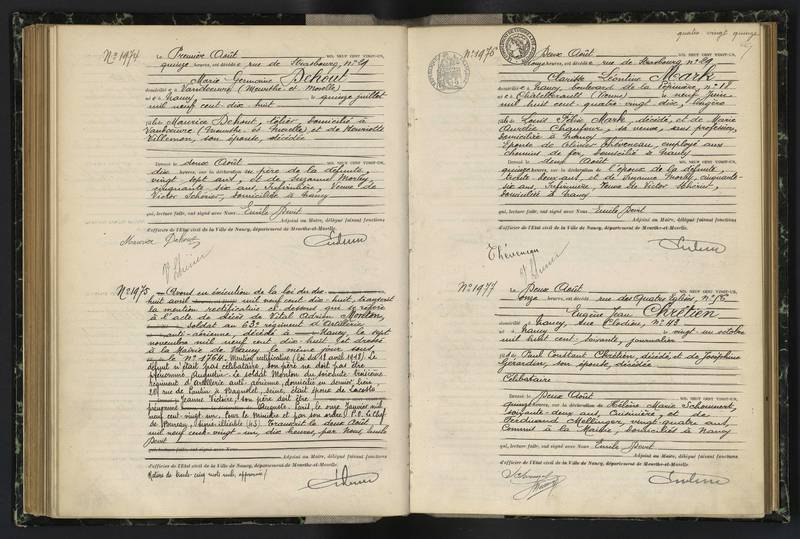 quatre vingt quinze
N° 1974
Le Première Août MIL NEUF CENT VINGT-UN,
quinze heures, est décédée rue de Strasbourg, n° 69
Marie Germaine Dehout
domiciliée à Vandœuvre (Meurthe et Moselle)
née à Nancy, le quinze juillet
mil neuf cent dix huit
fille de Maurice Dehout, tôlier, domicilié à
Vandœuvre (Meurthe et Moselle) et de Henriette
Villemon, son épouse, décédée
Dressé le deux Août MIL NEUF CENT VINGT-UN,
dix heures, sur la déclaration du père de la défunte,
vingt sept ans, et de Suzanne Morley,
cinquante six ans, Infirmière, Veuve de
Victor Schérier, domiciliée à Nancy
qui, lecture faite, ont signé avec Nous Emile
Adjoint au Maire, délégué faisant fonctions
d'officier de l'Etat civil de la Ville de Nancy, département de Meurthe-et-Moselle.
Maurice Dehout
N° 1975
Avons en exécution de la loi du dix
huit avril mil neuf cent dix-huit, transcrit
la mention rectificative ci dessous qui se réfère
à l'acte de décès de Vital Adrien Monton,
soldat au 63e régiment d'Artillerie
anti-aérienne, décédé à Nancy, le sept
novembre mil neuf cent dix-huit et dressé
à la Mairie de Nancy le même jour sous
le n° 1764. Mention rectificative (loi du 18 avril 1918) Le
défunt n'était pas célibataire, son père ne doit pas être
prénommé Augustin. Le soldat Monton du soixante troisième
régiment d'artillerie anti-aérienne, domicilié en dernier lieu,
rue de Pantin à Bagnolet, Seine, était époux de Lacoste
Jeanne Victoire, son père doit être
prénommé Auguste. Paris, le onze Janvier mil
neuf cent vingt un, pour le Ministre et par son ordre, P.O. le Chef
de Bureau, (signé illisible) (43). Transcrit le deux Août
mil neuf cent vingt-un, dix heures, par Nous, Emile
qui, lecture faite, ont signé avec Nous
Adjoint au Maire, délégué faisant fonctions
d'officier de l'Etat civil de la Ville de Nancy, département de Meurthe-et-Moselle.
Rature de trente-cinq mots nuls, approuvée
N° 1976
Le Deux Août MIL NEUF CENT VINGT-UN,
douze heures, est décédée rue de Strasbourg n° 69
Clarisse Léontine Mark
domiciliée à Nancy, boulevard de la Pépinière, n° 18
née à Châtellerault (Vienne) le neuf Juin
mil huit cent quatre vingt dix, lingère
fille de Louis Félix Mark, décédé, et de Marie
Aurélie Chaufour, sa veuve, sans profession,
domiciliée à Nancy
Epouse de Olivier Théveneau, employé aux
chemins de fer, domicilié à Nancy
Dressé le deux Août MIL NEUF CENT VINGT-UN,
quinze heures, sur la déclaration de l'époux de la défunte,
trente deux ans, et de Suzanne Morley, cinquante-
six ans, Infirmière, Veuve de Victor Schérier,
domiciliés à Nancy
qui, lecture faite, ont signé avec Nous Emile
Adjoint au Maire, délégué faisant fonctions
d'officier de l'Etat civil de la Ville de Nancy, département de Meurthe-et-Moselle.
N° 1977
Le Deux Août MIL NEUF CENT VINGT-UN,
onze heures, est décédé rue des Quatre Eglises, n°
Eugène Jean Chrétien
domicilié à Nancy, rue Clodion, n° 43
né à Nancy le vingt un octobre
mil huit cent soixante, journalier
fils de Paul Constant Chrétien, décédé, et de Joséphine
Gérardin, son épouse, décédée
Célibataire
Dressé le Deux Août MIL NEUF CENT VINGT-UN,
quinze heures, sur la déclaration de Hélène Marie Schouvert,
soixante-deux ans, Cuisinière, et de
Ferdinand Mellinger, vingt-quatre ans,
Commis à la Mairie, domiciliés à Nancy
qui, lecture faite, ont signé avec Nous Emile
Adjoint au Maire, délégué faisant fonctions
d'officier de l'Etat civil de la Ville de Nancy, département de Meurthe-et-Moselle.